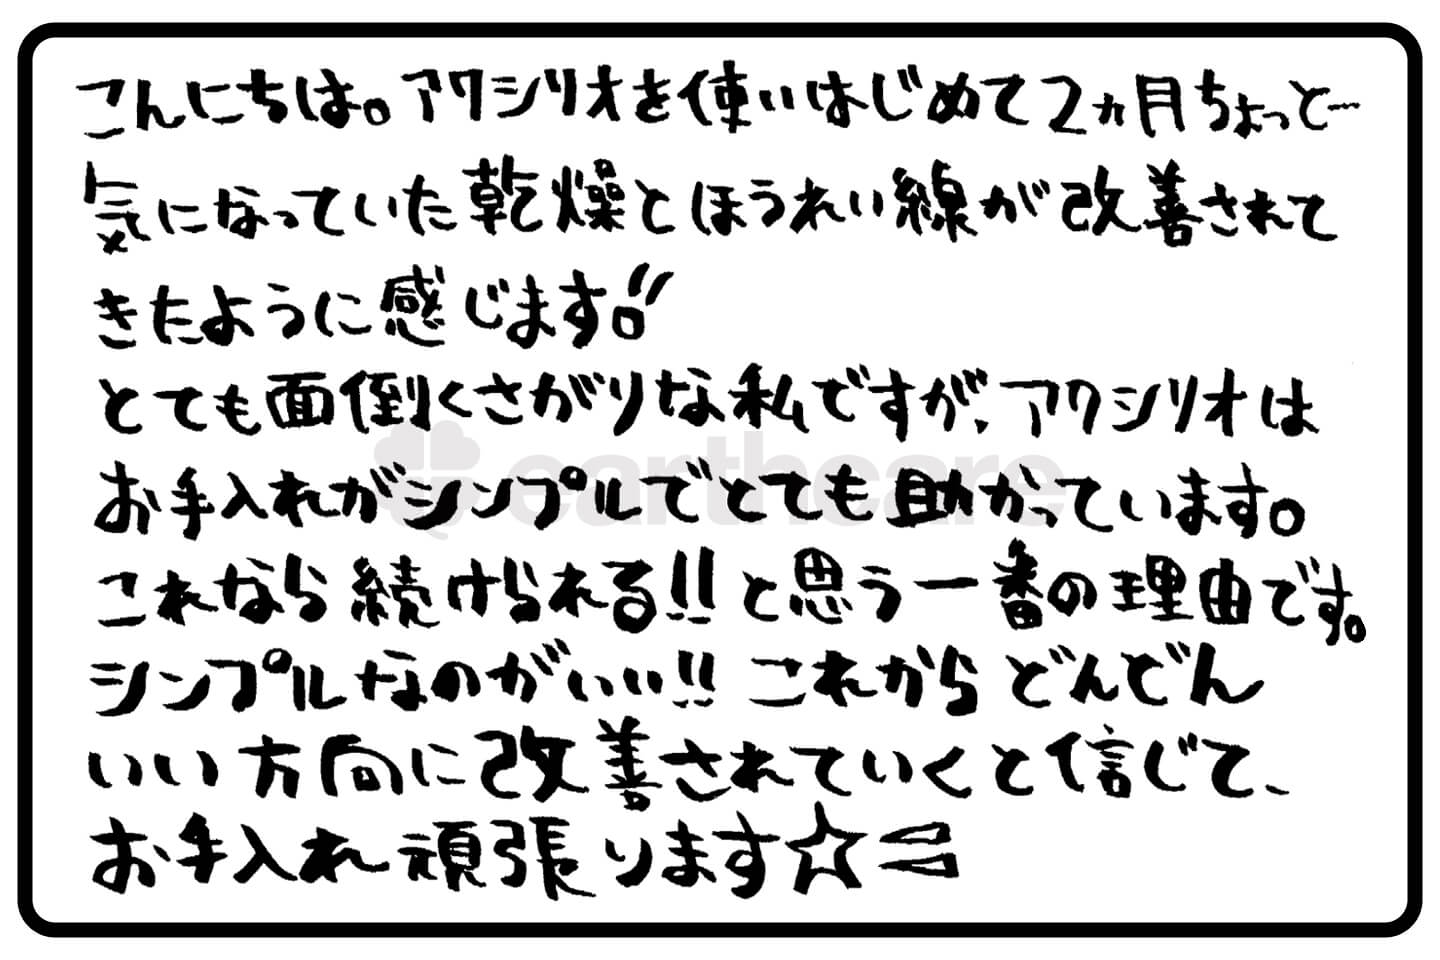 こんにちは。アクシリオを使いはじめて2ヵ月ちょっと…
気になっていた乾燥とほうれい線が改善されて
きたように感じます!!
とても面倒くさがりな私ですが、アクシリオは
お手入れがシンプルでとても助かっています。
earthcare
これなら続けられる!!と思う一番の理由です。
シンプルなのがいい!! これからどんどん
いい方向に改善されていくと信じて、
お手入れ頑張ります☆